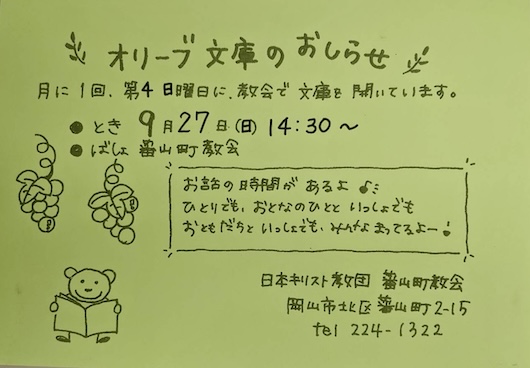 オリーブ文庫のおしらせ
月に1回、第4日曜日に、教会で文庫を開いています。
●とき 9月27日(日) 14:30〜
●ばしょ 蕃山町教会
お話の時間があるよ♪
ひとりでも、おとなのひとといっしょでも
おともだちといっしょでも、みんなまってるよー!
日本キリスト教団 蕃山町教会
岡山市北区蕃山町2-15
tel 224-1322